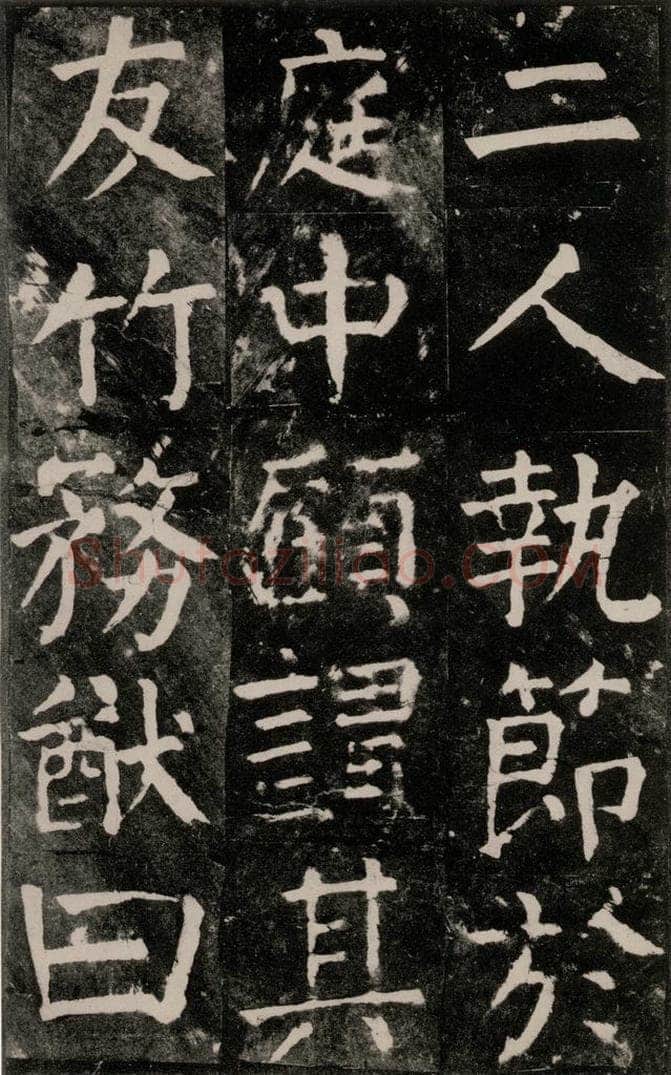 二人執節於
庭中顧謂其
友竹務猷曰
Shufaziliao.COM